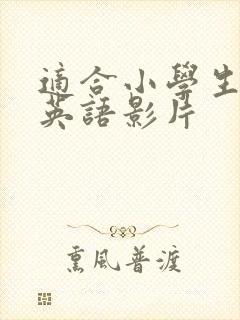 適合小學生
英語影片
熏風普渡